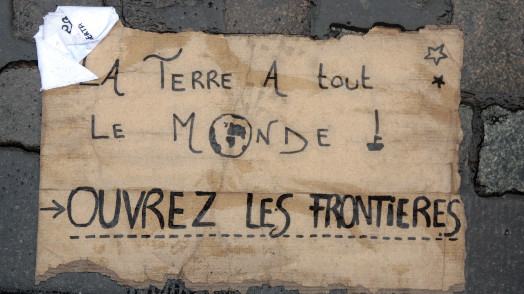 LA TERRE A tout
LE MONDE !
→ OUVREZ LES FRONTIERES